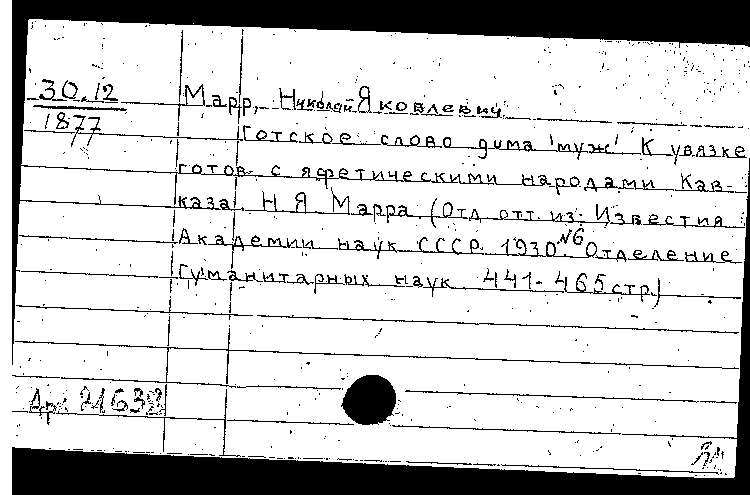 30.12
1877
Марр, Николай Яковлевич
Готское слово дима 'муж' К увязке
готов с яфетическими народами Кав-
каза. Н Я Марра (Отд отт. из. Известия
Академии наук СССР. 1930. №6 Отделение
Гуманитарных наук 441-465 стр.)
21632